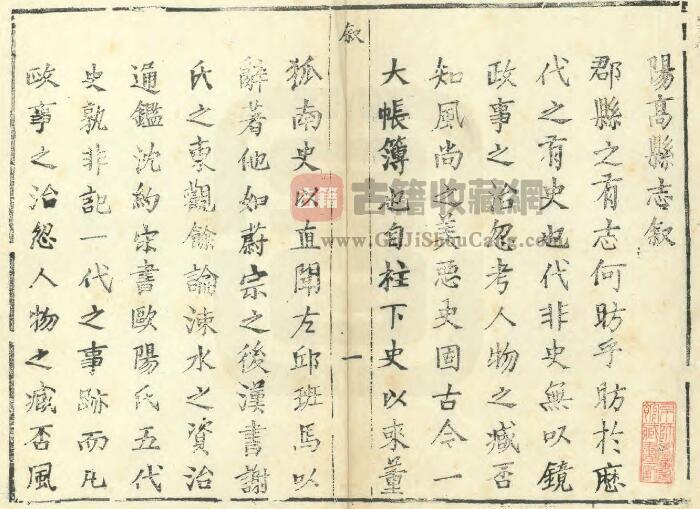 陽高縣志叙
郡縣之有志何昉乎昉於歷
代之有史也代非史無以鏡
政事之治忽考人物之臧否
知風尚之美惡史固古今一
大帳簿也自柱下史以來董
叙
一
狐南史以直聞左邱班馬以
辭著他如蔚宗之後漢書謝
氏之東觀餘論涑水之資治
通鑑沈約宋書歐陽氏五代
史孰非記一代之事跡而凡
政事之治忽人物之臧否風
古籍
古籍收藏網
www.GuJiShouCang.com